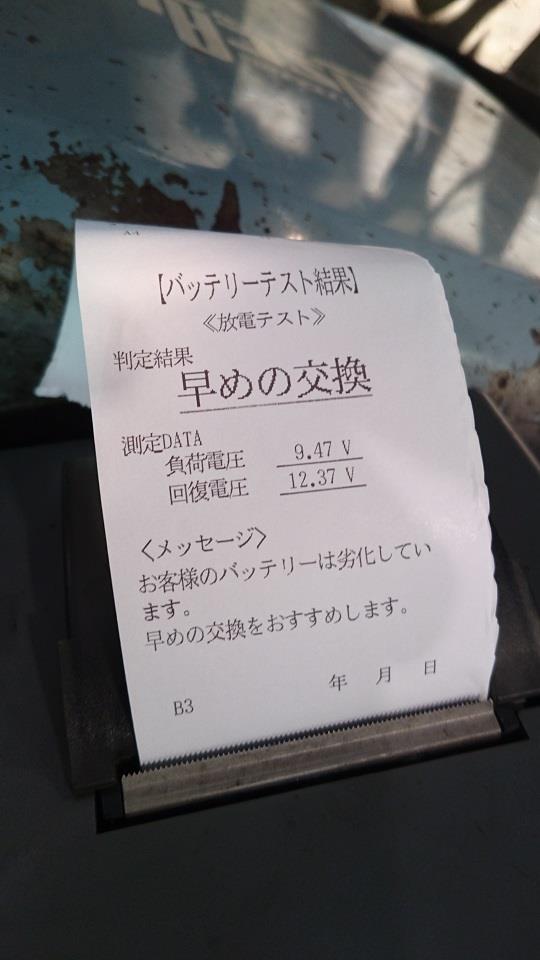 【バッテリーテスト結果】
《放電テスト》
判定結果
早めの交換
測定DATA
負荷電圧 9.47 V
回復電圧 12.37 V
〈メッセージ〉
お客様のバッテリーは劣化してい
ます。
早めの交換をおすすめします。
年 月 日
B3